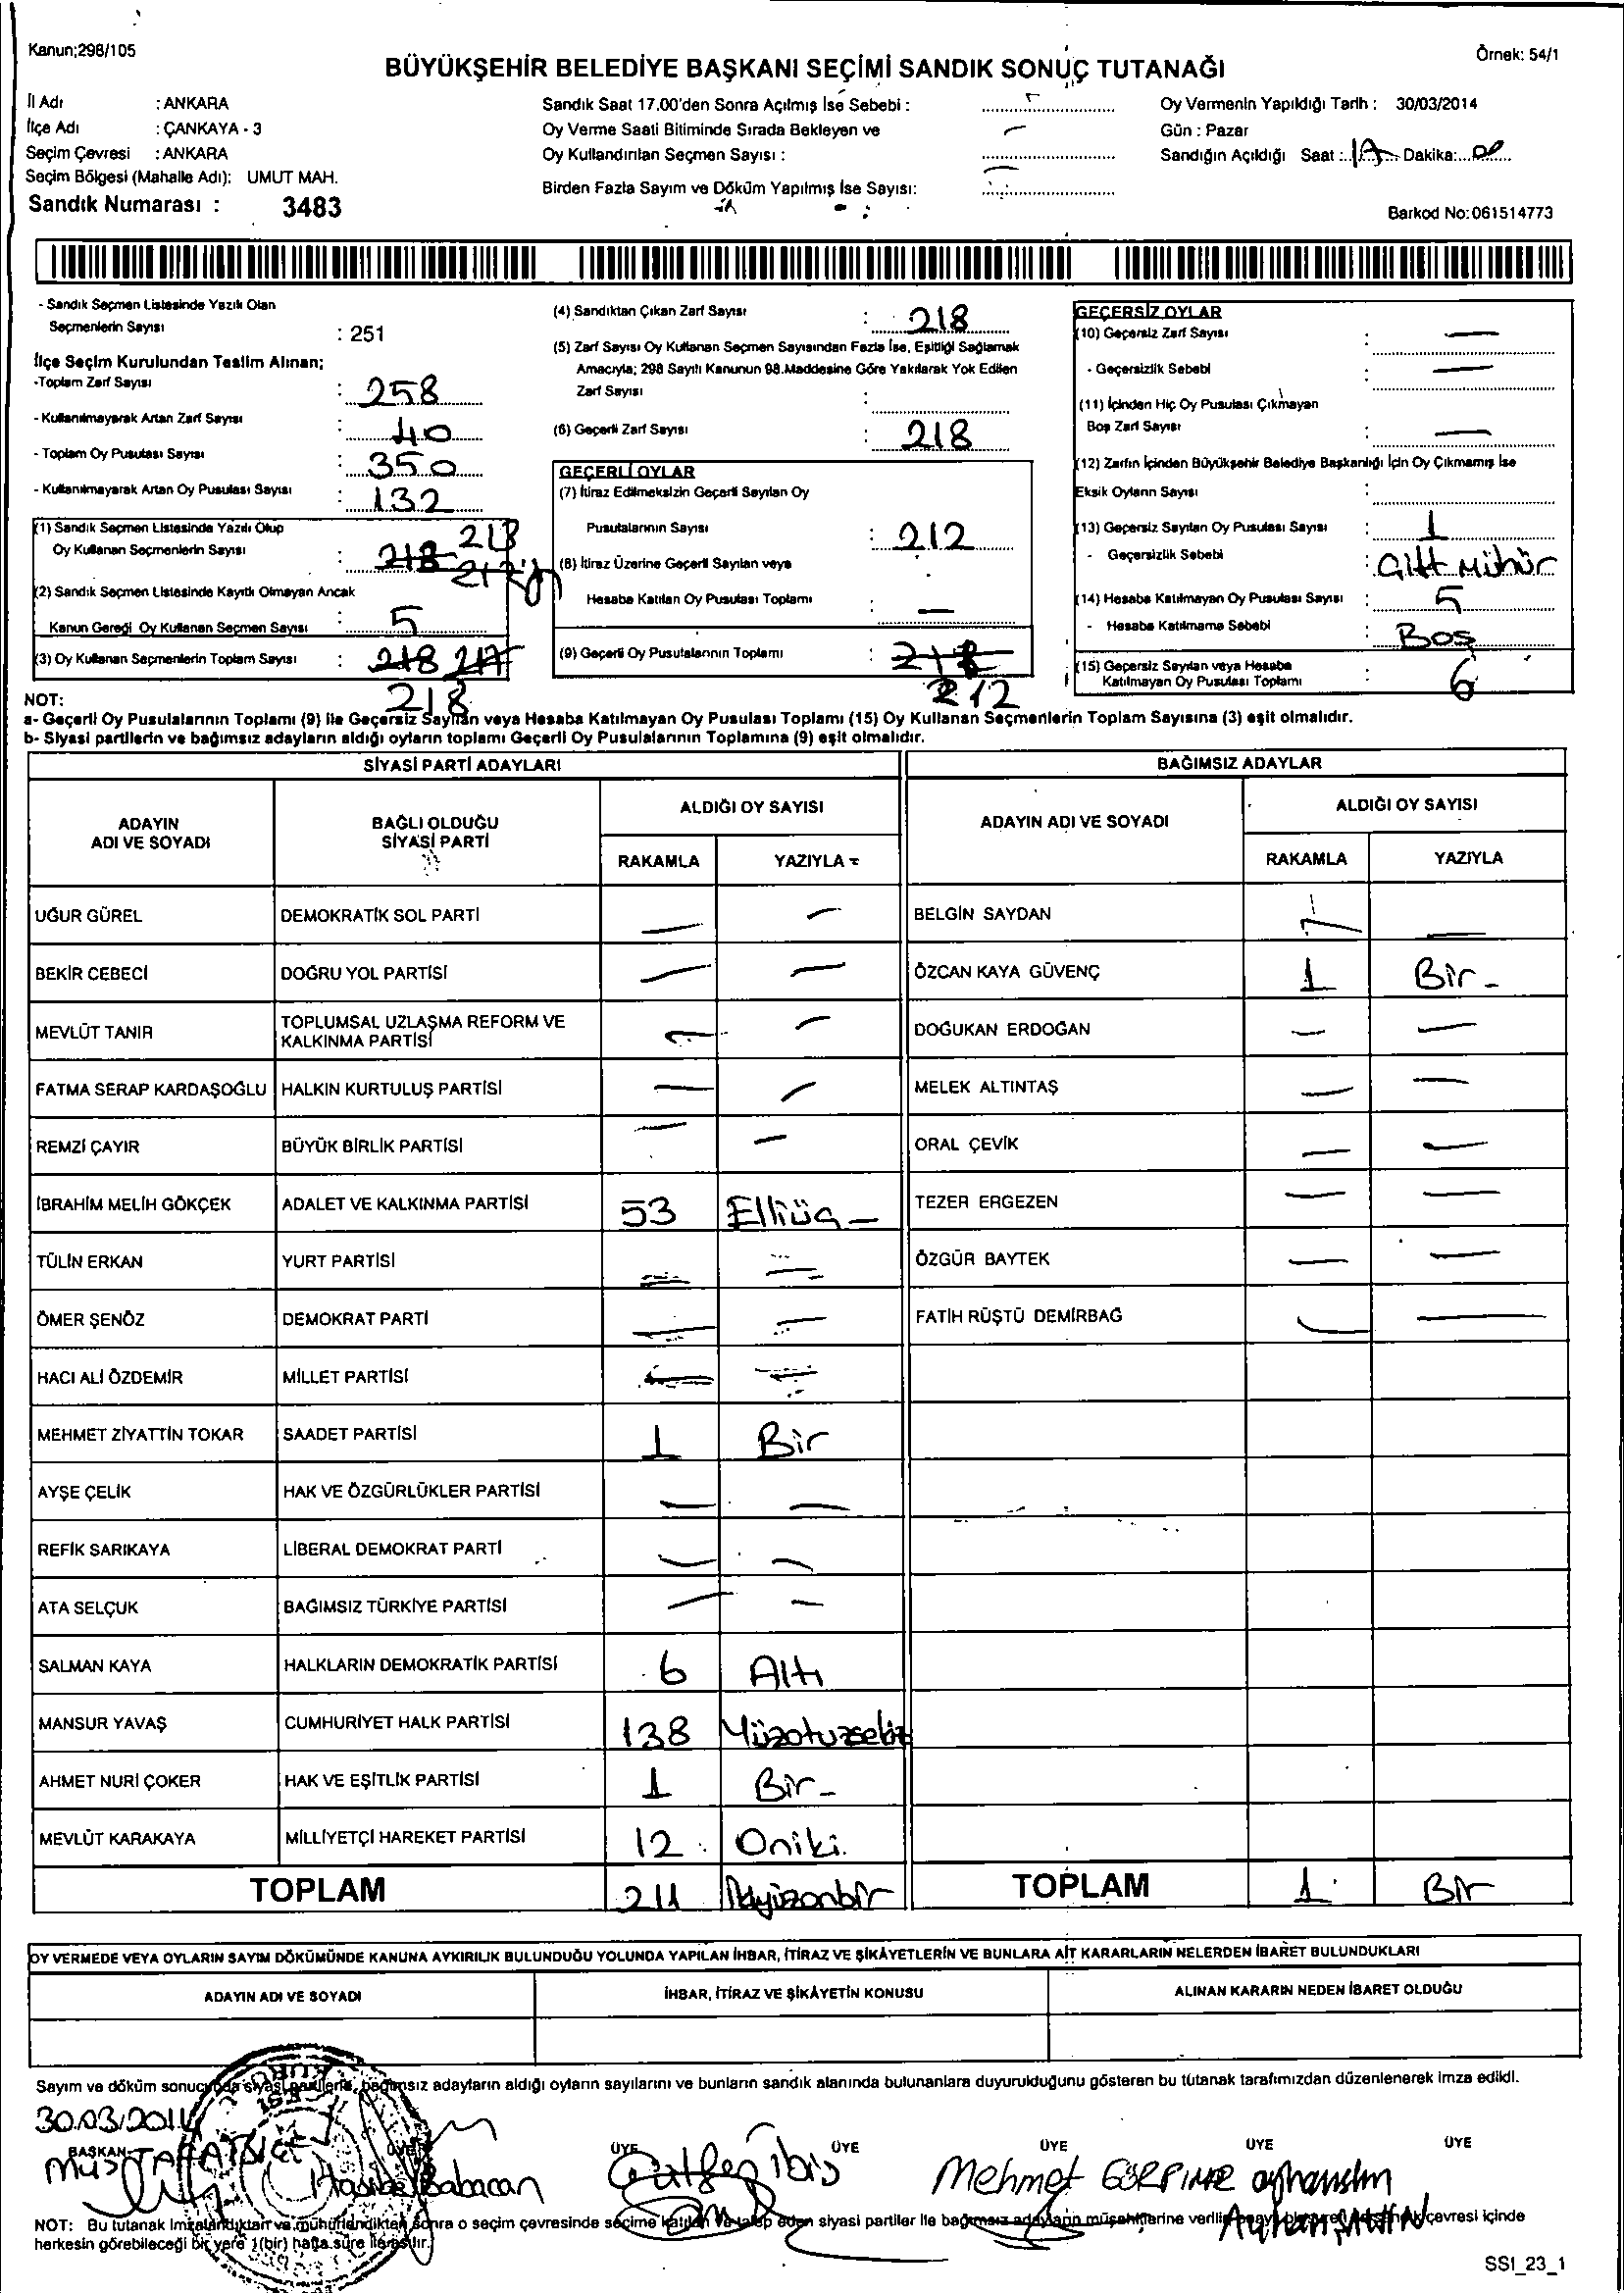 Kanun;298/105
Örnek: 54/1
BÜYÜKŞEHİR BELEDİYE BAŞKANI SEÇİMİ SANDIK SONUÇ TUTANAĞI
İl Adı : ANKARA
İlçe Adı : ÇANKAYA - 3
Seçim Çevresi : ANKARA
Seçim Bölgesi (Mahalle Adı): UMUT MAH.
Sandık Numarası : 3483
Sandık Saat 17.00'den Sonra Açılmış İse Sebebi :
Oy Verme Saati Bitiminde Sırada Bekleyen ve
Oy Kullandırılan Seçmen Sayısı :
Birden Fazla Sayım ve Döküm Yapılmış İse Sayısı:
Oy Vermenin Yapıldığı Tarih : 30/03/2014
Gün : Pazar
Sandığın Açıldığı Saat : 17 Dakika: 00
Barkod No:061514773
- Sandık Seçmen Listesinde Yazılı Olan
Seçmenlerin Sayısı : 251
İlçe Seçim Kurulundan Teslim Alınan;
-Toplam Zarf Sayısı : 258
- Kullanılmayarak Artan Zarf Sayısı : 40
- Toplam Oy Pusulası Sayısı : 350
- Kullanılmayarak Artan Oy Pusulası Sayısı : 132
(1) Sandık Seçmen Listesinde Yazılı Olup
Oy Kullanan Seçmenlerin Sayısı : 218 213
212
(2) Sandık Seçmen Listesinde Kayıtlı Olmayan Ancak
Kanun Gereği Oy Kullanan Seçmen Sayısı : 5
(3) Oy Kullanan Seçmenlerin Toplam Sayısı : 218 217
218
(4) Sandıktan Çıkan Zarf Sayısı : 218
(5) Zarf Sayısı Oy Kullanan Seçmen Sayısından Fazla İse, Eşitliği Sağlamak
Amacıyla; 298 Sayılı Kanunun 98.Maddesine Göre Yakılarak Yok Edilen
Zarf Sayısı :
(6) Geçerli Zarf Sayısı : 218
GEÇERLİ OYLAR
(7) İtiraz Edilmeksizin Geçerli Sayılan Oy
Pusulalarının Sayısı : 212
(8) İtiraz Üzerine Geçerli Sayılan veya
Hesaba Katılan Oy Pusulası Toplamı : —
(9) Geçerli Oy Pusulalarının Toplamı : 218
212
GEÇERSİZ OYLAR
(10) Geçersiz Zarf Sayısı : —
- Geçersizlik Sebebi : —
(11) İçinden Hiç Oy Pusulası Çıkmayan
Boş Zarf Sayısı : —
(12) Zarfın İçinden Büyükşehir Belediye Başkanlığı İçin Oy Çıkmamış İse
Eksik Oyların Sayısı :
(13) Geçersiz Sayılan Oy Pusulası Sayısı : 1
- Geçersizlik Sebebi : Çift Mühür
(14) Hesaba Katılmayan Oy Pusulası Sayısı : 5
- Hesaba Katılmama Sebebi : Boş
(15) Geçersiz Sayılan veya Hesaba
Katılmayan Oy Pusulası Toplamı : 6
NOT:
a- Geçerli Oy Pusulalarının Toplamı (9) ile Geçersiz Sayılan veya Hesaba Katılmayan Oy Pusulası Toplamı (15) Oy Kullanan Seçmenlerin Toplam Sayısına (3) eşit olmalıdır.
b- Siyasi partilerin ve bağımsız adayların aldığı oyların toplamı Geçerli Oy Pusulalarının Toplamına (9) eşit olmalıdır.
SİYASİ PARTİ ADAYLARI
ADAYIN ADI VE SOYADI
BAĞLI OLDUĞU SİYASİ PARTİ
ALDIĞI OY SAYISI
RAKAMLA YAZIYLA
UĞUR GÜREL DEMOKRATİK SOL PARTİ — —
BEKİR CEBECİ DOĞRU YOL PARTİSİ — —
MEVLÜT TANIR TOPLUMSAL UZLAŞMA REFORM VE KALKINMA PARTİSİ — —
FATMA SERAP KARDAŞOĞLU HALKIN KURTULUŞ PARTİSİ — —
REMZİ ÇAYIR BÜYÜK BİRLİK PARTİSİ — —
İBRAHİM MELİH GÖKÇEK ADALET VE KALKINMA PARTİSİ 53 Elliüç —
TÜLİN ERKAN YURT PARTİSİ — —
ÖMER ŞENÖZ DEMOKRAT PARTİ — —
HACI ALİ ÖZDEMİR MİLLET PARTİSİ — —
MEHMET ZİYATTİN TOKAR SAADET PARTİSİ 1 Bir
AYŞE ÇELİK HAK VE ÖZGÜRLÜKLER PARTİSİ — —
REFİK SARIKAYA LİBERAL DEMOKRAT PARTİ — —
ATA SELÇUK BAĞIMSIZ TÜRKİYE PARTİSİ — —
SALMAN KAYA HALKLARIN DEMOKRATİK PARTİSİ 6 Altı
MANSUR YAVAŞ CUMHURİYET HALK PARTİSİ 138 Yüzotuzsekiz
AHMET NURİ ÇOKER HAK VE EŞİTLİK PARTİSİ 1 Bir -
MEVLÜT KARAKAYA MİLLİYETÇİ HAREKET PARTİSİ 12 Oniki.
TOPLAM 211 İkiyüzonbir
BAĞIMSIZ ADAYLAR
ADAYIN ADI VE SOYADI
ALDIĞI OY SAYISI
RAKAMLA YAZIYLA
BELGİN SAYDAN — —
ÖZCAN KAYA GÜVENÇ 1 Bir -
DOĞUKAN ERDOĞAN — —
MELEK ALTINTAŞ — —
ORAL ÇEVİK — —
TEZER ERGEZEN — —
ÖZGÜR BAYTEK — —
FATİH RÜŞTÜ DEMİRBAĞ — —
TOPLAM 1 Bir
OY VERMEDE VEYA OYLARIN SAYIM DÖKÜMÜNDE KANUNA AYKIRILIK BULUNDUĞU YOLUNDA YAPILAN İHBAR, İTİRAZ VE ŞİKÂYETLERİN VE BUNLARA AİT KARARLARIN NELERDEN İBARET BULUNDUKLARI
ADAYIN ADI VE SOYADI
İHBAR, İTİRAZ VE ŞİKÂYETİN KONUSU
ALINAN KARARIN NEDEN İBARET OLDUĞU
Sayım ve döküm sonucunda siyasi partilerle, bağımsız adayların aldığı oyların sayılarını ve bunların sandık alanında bulunanlara duyurulduğunu gösteren bu tutanak tarafımızdan düzenlenerek imza edildi.
30.03.2014
BAŞKAN ÜYE ÜYE ÜYE ÜYE ÜYE ÜYE
Babacan Mehmet GÜRPINAR
Ayhan ŞAHİN
NOT: Bu tutanak imzalandıktan ve mühürlendikten sonra o seçim çevresinde seçime katılan ve talep eden siyasi partiler ile bağımsız adayların müşahitlerine verilir çevresi içinde
herkesin görebileceği bir yere 1(bir) hafta süre ile asılır.
SSI_23_1